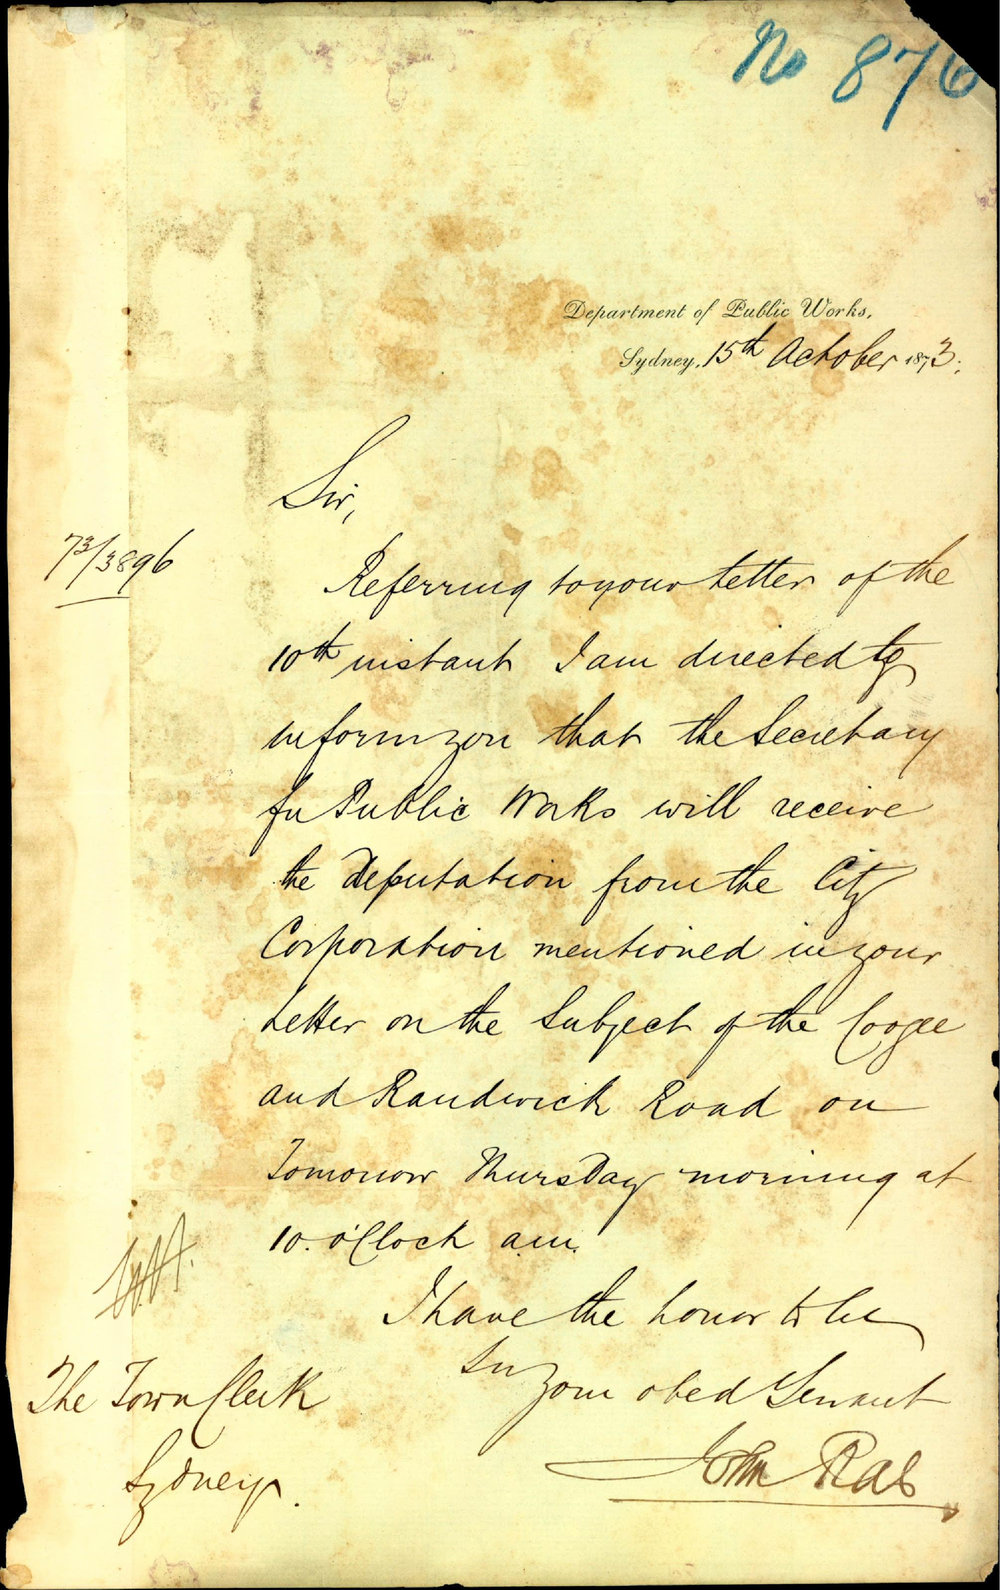 No 876
Department of Public Works,
Sydney, 15th October 1873.
Sir,
73/3896
Referring to your letter of the
10th instant I am directed to
inform you that the Secretary
for Public Works will receive
the Deputation from the City
Corporation mentioned in your
letter on the Subject of the Coogee
and Randwick Road on
Tomorrow Thursday morning at
10. o'Clock am.
I have the honor to be
Sir
Your obed Servant
John Rae
The Town Clerk
Sydney.